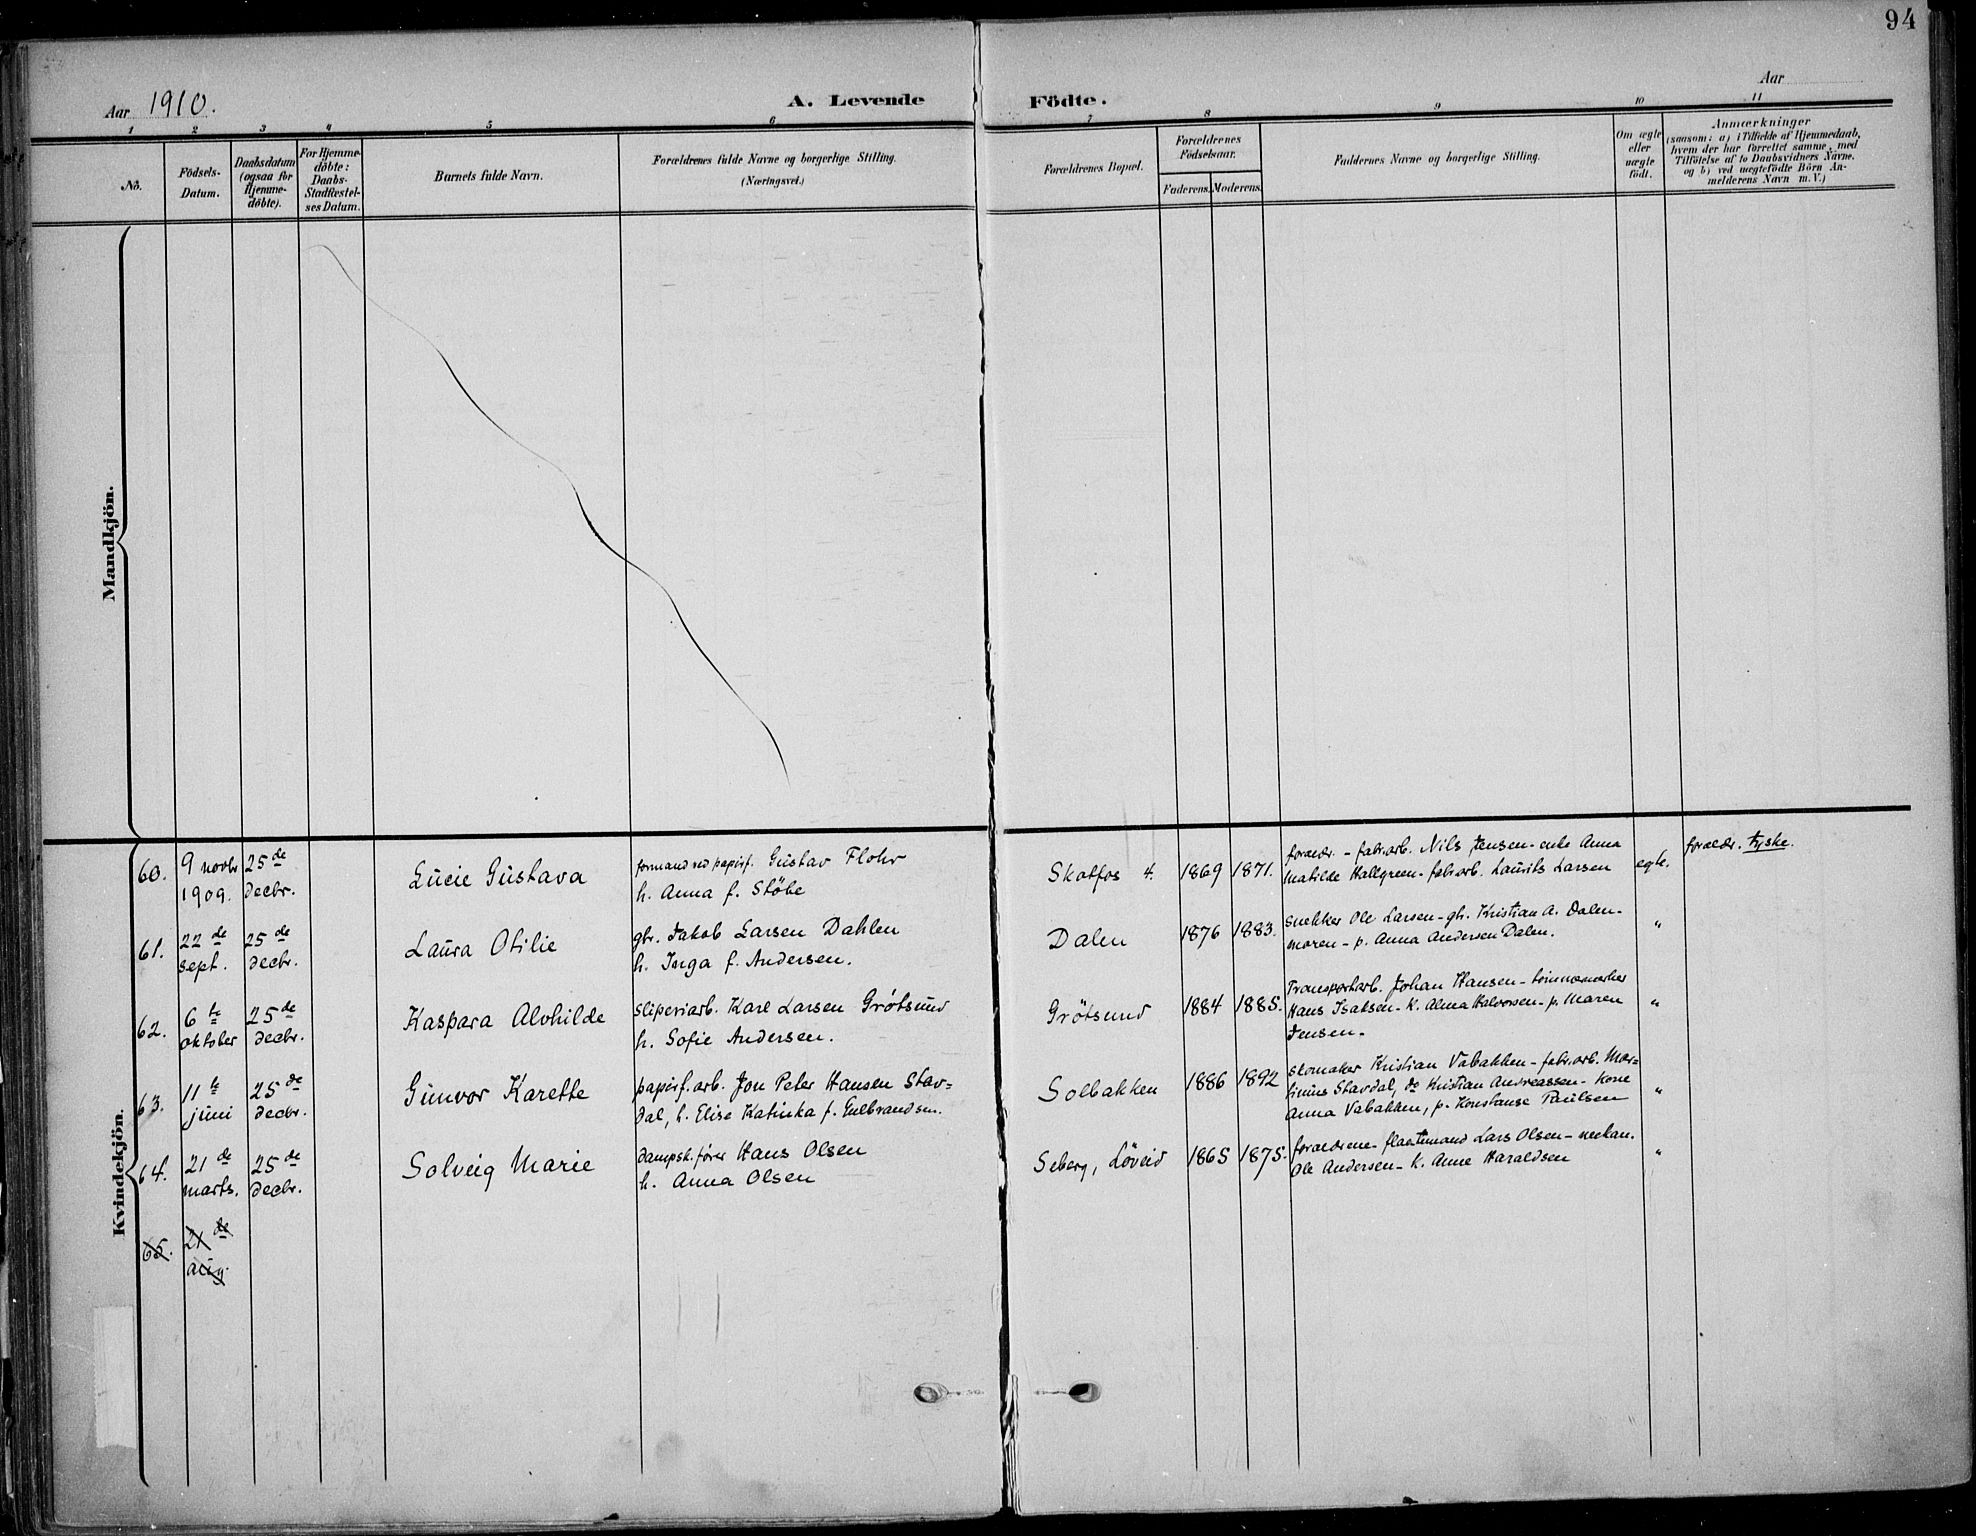 94
Aar 1910.
A. Levende Födte.
Aar
1 2 3 4 5 6 7 8 9 10 11
No.
Födsels-
Datum.
Daabsdatum
(ogsaa for
Hjemme-
döbte).
For Hjemme-
döbte:
Daabs-
Stadfæstel-
ses Datum.
Barnets fulde Navn.
Forældrenes fulde Navne og borgerlige Stilling.
(Næringsvei.)
Forældrenes Bopæl.
Forældrenes
Födselsaar.
Faderens. Moderens.
Faddernes Navne og borgerlige Stilling.
Om ægte
eller
uægte
födt.
Anmærkninger
(saasom: a) i Tilfælde af Hjemmedaab,
hvem der har forrettet samme, med
Tilföielse af to Daabsvidners Navne.
og b) ved uægtefödte Börn An-
melderens Navn m. V.)
Mandkjön.
Kvindekjön.
60. 9 novbr 1909. 25 de decbr. Lucie Gustava
formand ved papirf. Gustav Flohr
h. Anna f. Stöbe
Skotfos 4. 1869 1871.
foraeldr. - fabr.arb. Nils Jensen - enke Anna
Matilde Hallgreen - fabr.arb. Laurits Larsen
egte.
foraeldr. tyske.
61. 22 de sept. 25 de decbr. Laura Otilie
gbr. Jakob Larsen Dahlen
h. Inga f. Andersen.
Dalen 1876 1883.
snekker Ole Larsen - gbr. Kristian A. Dalen -
moren - p. Anna Andersen Dalen.
"
62. 6 te oktober 25 de decbr. Kaspara Alvhilde
sliperiarb. Karl Larsen Grötsund
h. Sofie Andersen.
Grötsund 1884 1885.
Transportarb. Johan Hansen - tömmermerker
Hans Isaksen - k. Alma Halvorsen - p. Maren
Jensen -
"
63. 11 te juni 25 de decbr. Gunvor Karette
papirf.arb. Jon Peter Hansen Stav=
dal, h. Elise Katinka f. Gulbrandsen.
Solbakken 1886 1892
skomaker Kristian Vabakken - fabr.arb. Mar=
tinius Stavdal, do Kristian Andreassen - kone
Anna Vabakken, p. Konstanse Paulsen
"
64. 21 de marts. 25 de decbr. Solveig Marie
dampsk.fører Hans Olsen
h. Anna Olsen
Seberg, Löveid 1865 1875.
foraeldrene - Lars Olsen - mekan.
Ole Andersen - k. Anne Haraldsen
"
65. 21 de aug.